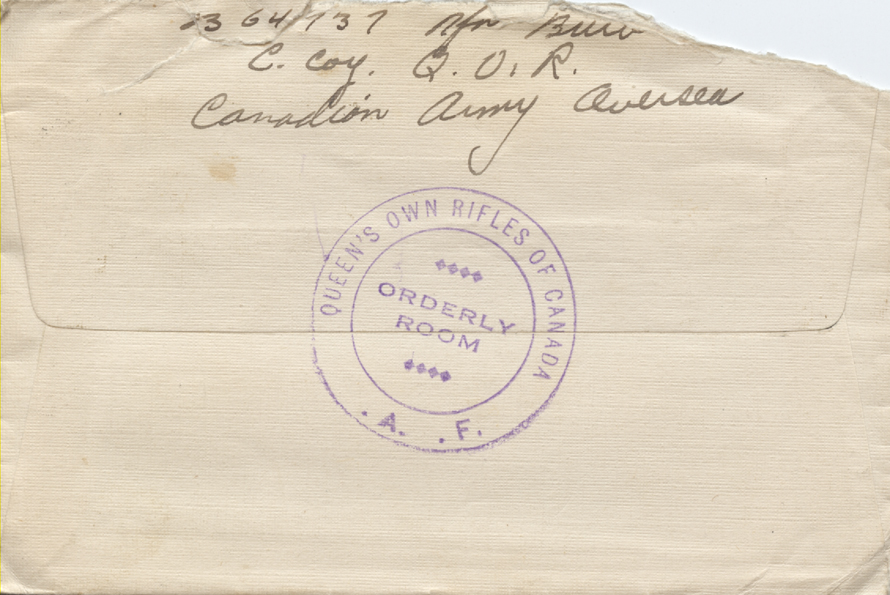 Rfn
C. Coy. Q. O. R.
Canadian Army Oversea
QUEEN'S OWN RIFLES OF CANADA
ORDERLY
ROOM
. A. . F.